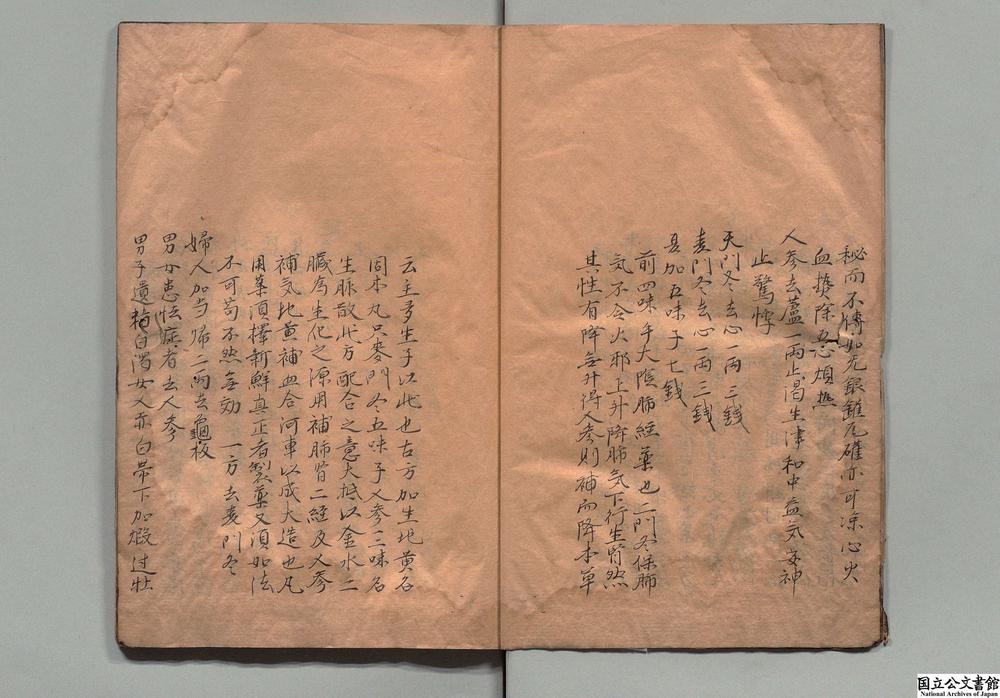 秘而不傳如无銀錐瓦礶亦可涼心火
血換除五心煩热
人参去蘆一兩止渴生津和中益気安神
止驚悸
天門冬去心一兩三錢
麦門冬去心一兩三錢
夏加五味子七錢
前四味手太陰肺経薬也二門冬保肺
気不令火邪上升降肺気下行生腎然
其性有降無升得人参則補而降本草
云主多生子以此也古方加生地黄名
固本丸只麥門冬五味子人参三味名
生脉散此方配合之意大抵以金水二
臓為生化之源用補肺腎二経及人参
補気地黄補血合河車以成大造也凡
用薬須擇新鮮真正者製薬又須如法
不可苟不然無効 一方去麦門冬
婦人加当帰二兩去龜板
男女患怯症者去人参
男子遺精白濁女人赤白帯下加煆过牡
国立公文書館
National Archives of Japan